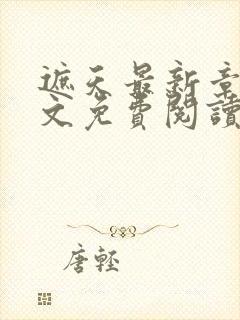 遮天最新章
文免費閱讀
唐輕